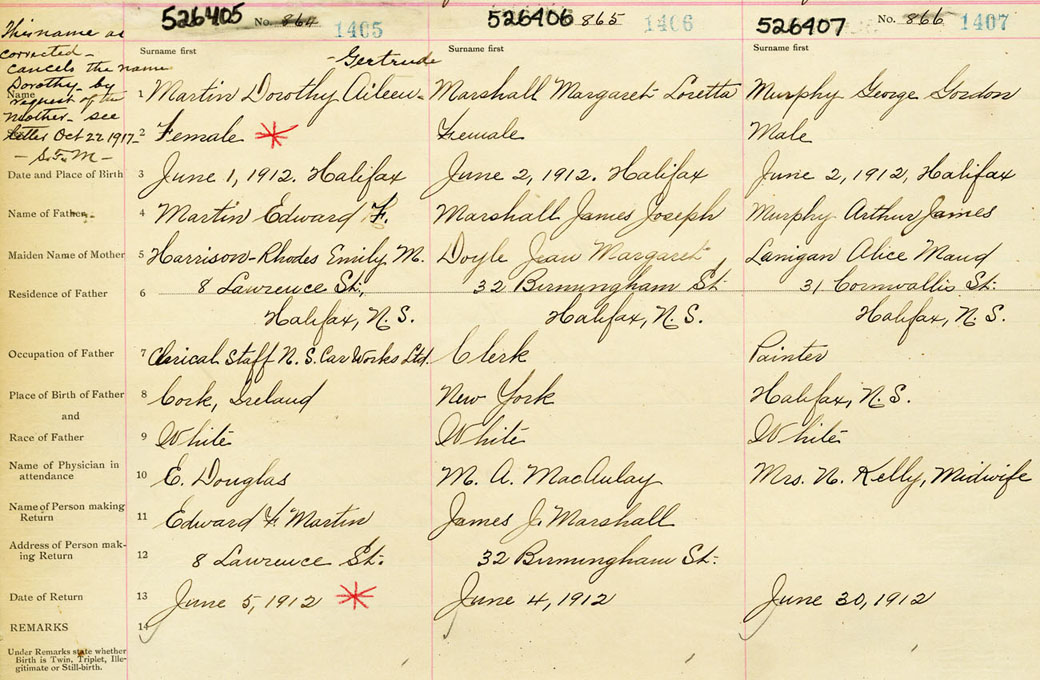 526405 No. 864 1405 526406 865 1406 526407 No. 866 1407
This name as
corrected -
cancels the name
Dorothy - by
request of the
mother - see
letter Oct 22 1917 -
- S.F.M -
Surname first Surname first Surname first
- Gertrude
Name 1 Martin Dorothy Aileen - Marshall Margaret Loretta Murphy George Gordon
2 Female Female Male
Date and Place of Birth 3 June 1, 1912. Halifax June 2, 1912. Halifax June 2, 1912, Halifax
Name of Father 4 Martin Edward F. Marshall James Joseph Murphy Arthur James
Maiden Name of Mother 5 Harrison-Rhodes Emily M. Doyle Jean Margaret Lanigan Alice Maud
Residence of Father 6 8 Lawrence St., 32 Birmingham St 31 Cornwallis St.
Halifax, N.S. Halifax, N.S. Halifax, N.S.
Occupation of Father 7 Clerical Staff N.S. Car Works Ltd. Clerk Painter
Place of Birth of Father 8 Cork, Ireland New York Halifax, N.S.
and
Race of Father 9 White White White
Name of Physician in
attendance 10 E. Douglas M. A. MacAulay Mrs. N. Kelly, Midwife
Name of Person making
Return 11 Edward F. Martin James J. Marshall
Address of Person mak-
ing Return 12 8 Lawrence St. 32 Birmingham St.
Date of Return 13 June 5, 1912 June 4, 1912 June 30, 1912
REMARKS 14
Under Remarks state whether
Birth is Twin, Triplet, Ille-
gitimate or Still-birth.